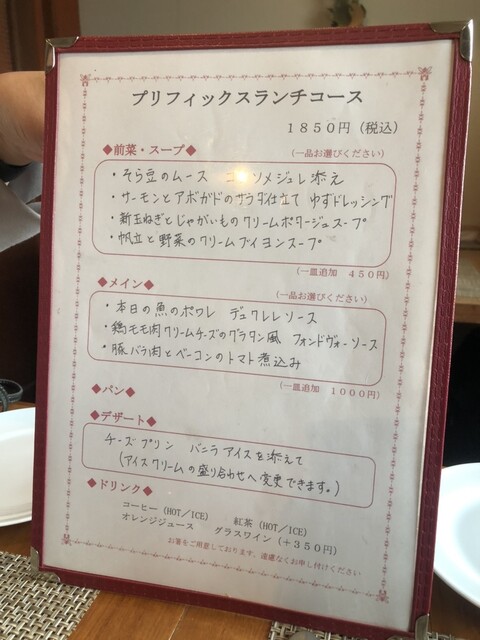 プリフィックスランチコース
1850円（税込）
◆前菜・スープ◆
（一品お選びください）
・そら豆のムース コンソメジュレ添え
・サーモンとアボガドのサラダ仕立て ゆずドレッシング
・新玉ねぎとじゃがいものクリームポタージュスープ
・帆立と野菜のクリームブイヨンスープ
（一皿追加 450円）
◆メイン◆
（一品お選びください）
・本日の魚のポワレ デュクレレソース
・鶏モモ肉クリームチーズのグラタン風 フォンドヴォーソース
・豚バラ肉とベーコンのトマト煮込み
（一皿追加 1000円）
◆パン◆
◆デザート◆
チーズプリン バニラアイスを添えて
（アイスクリームの盛り合わせへ変更できます。）
◆ドリンク◆
コーヒー（HOT／ICE） 紅茶（HOT／ICE）
オレンジジュース グラスワイン（＋350円）
お箸をご用意しております。遠慮なくお申し付けください